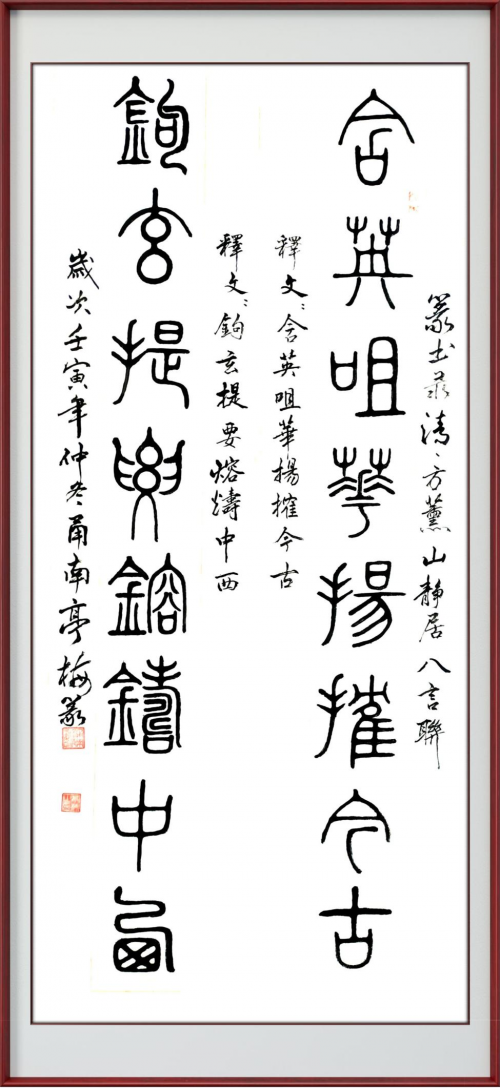 篆书录清、方薰山静居八言聯
含英咀華揚搉今古
釋文：含英咀華揚搉今古
釋文：鉤玄提要熔燽中西
鉤玄提要鎔鑄中西
歲次壬寅年仲冬甬南亭梅篆